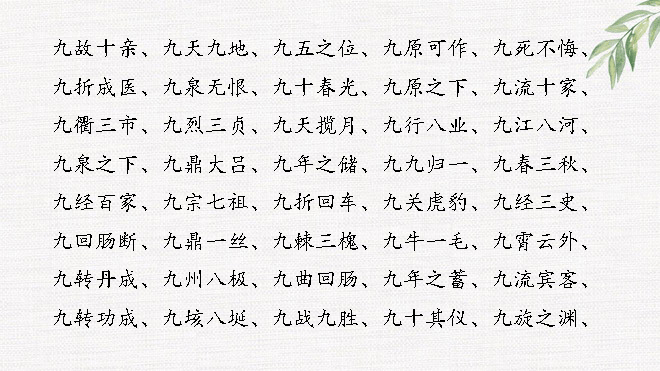 九故十亲、九天九地、九五之位、九原可作、九死不悔、
九折成医、九泉无恨、九十春光、九原之下、九流十家、
九衢三市、九烈三贞、九天揽月、九行八业、九江八河、
九泉之下、九鼎大吕、九年之储、九九归一、九春三秋、
九经百家、九宗七祖、九折回车、九关虎豹、九经三史、
九回肠断、九鼎一丝、九棘三槐、九牛一毛、九霄云外、
九转丹成、九州八极、九曲回肠、九年之蓄、九流宾客、
九转功成、九垓八埏、九战九胜、九十其仪、九旋之渊、